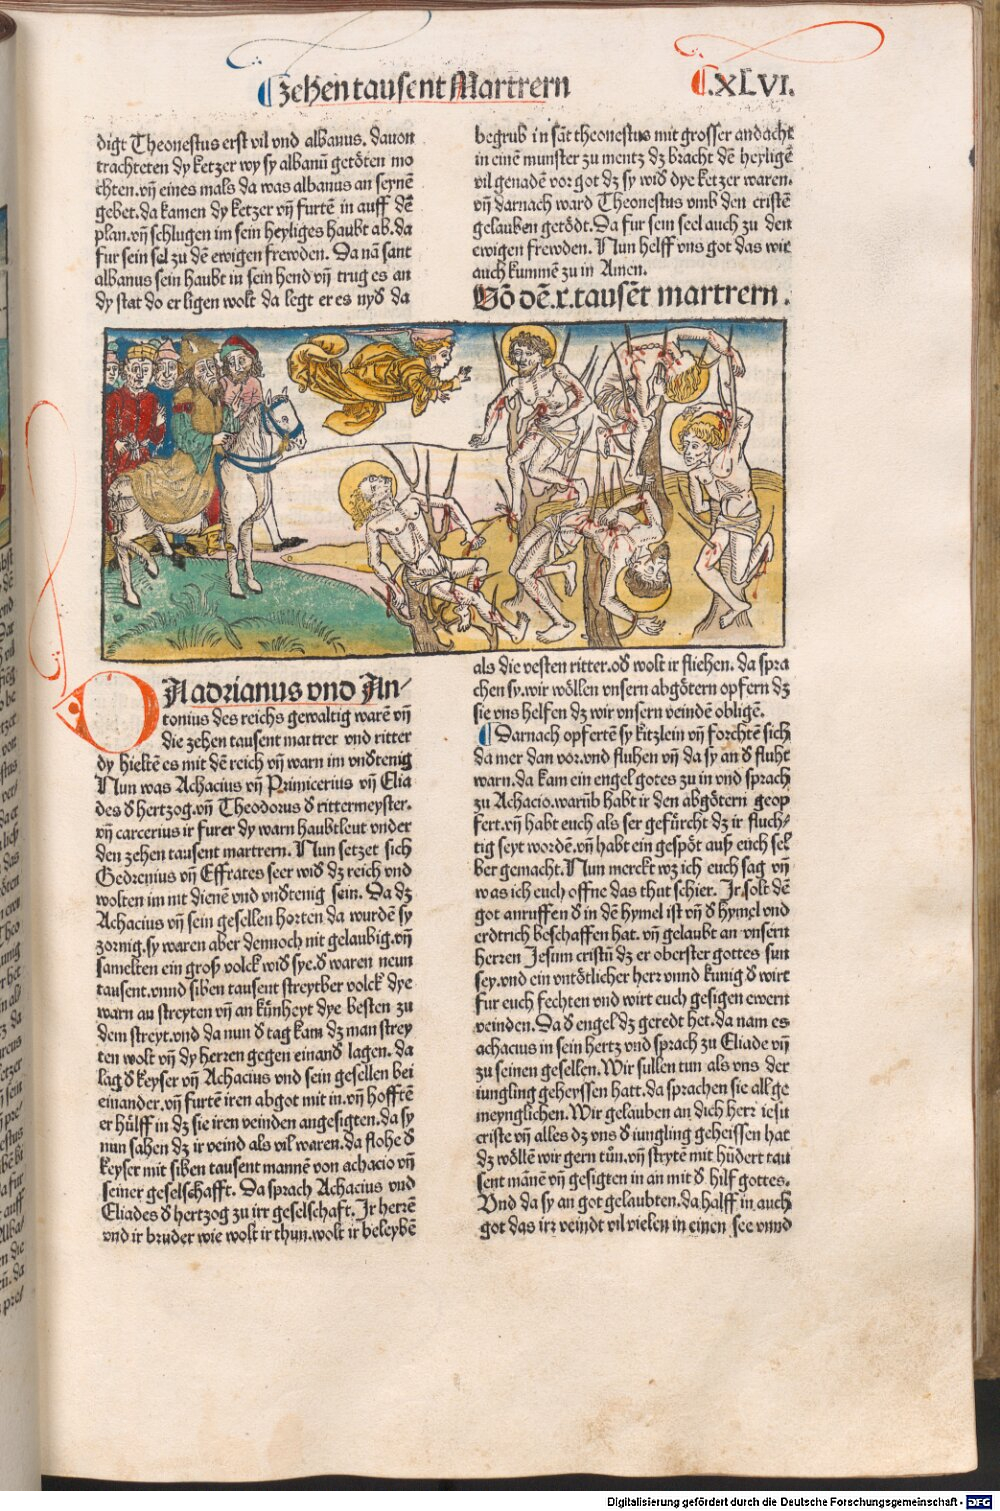 Zehen tausent Martrern
.XLVI.
digt Theonestus erst vil vnd albanus. dauon
trachteten dy ketzer wy sy albanū getöten mo
chten. vñ eines mals da was albanus an seynē
gebet. da kamen dy ketzer vñ furtē in auff dē
plan. vñ schlugen im sein heyliges haubt ab. da
fur sein sel zu dē ewigen frewden. Da nā sant
albanus sein haubt in sein hend vñ trug es an
dy stat do er ligen wolt da legt er es nyd̄ da
begrub in sāt theonestus mit grosser andacht
in einē munster zu mentz dz bracht dē heyligē
vil genadē vor got dz sy wid̄ dye ketzer waren.
vñ darnach ward Theonestus vmb den cristē
gelauben getödt. Da fur sein seel auch zu den
ewigen frewden. Nun helff vns got das wir
auch kummē zu in Amen.
Vō dē .x. tausēt martrern.
DA adrianus vnd An-
tonius des reichs gewaltig warē vñ
die zehen tausent martrer vnd ritter
dy hieltē es mit dē reich vñ warn im vnd̄tenig
Nun was Achacius vñ Primicerius vñ Elia
des d̄ hertzog. vñ Theodorus d̄ rittermeyster.
vñ carcerius ir furer dy warn haubtleut vnder
den zehen tausent martrern. Nun setzet sich
Gedrenius vñ Effrates seer wid̄ dz reich vnd
wolten im nit dienē vnd vnd̄tenig sein. Da dz
Achacius vñ sein gesellen horten da wurdē sy
zornig. sy waren aber dennoch nit gelaubig. vñ
samelten ein groß volck wid̄ sye. d̄ waren neun
tausent. vnnd siben tausent streytber volck dye
warn an streyten vñ an kůnheyt dye besten zu
dem streyt. vnd da nun d̄ tag kam dz man strey
ten wolt vñ dy herren gegen einand̄ lagen. da
lag d̄ keyser vñ Achacius vnd sein gesellen bei
einander. vñ furtē iren abgot mit in. vñ hofftē
er hülff in dz sie iren veinden angesigten. da sy
nun sahen dz ir veind als vil waren. da flohe d̄
keyser mit siben tausent mannē von achacio vñ
seiner geselschafft. Da sprach Achacius vnd
Eliades d̄ hertzog zu irr geselschaft. Ir herrē
vnd ir bruder wie wolt ir thun. wolt ir beleybē
als die vesten ritter. od̄ wolt ir fliehen. da spra
chen sy. wir wöllen vnsern abgötern opfern dz
sie vns helfen dz wir vnsern veindē obligē.
Darnach opfertē sy kitzlein vñ forchtē sich
da mer dan vor. vnd fluhen vñ da sy an d̄ fluht
warn. da kam ein engel gotes zu in vnd sprach
zu Achacio. warūb habt ir den abgötern geop
fert. vñ habt euch als ser gefürcht dz ir fluch-
tig seyt wordē. vñ habt ein gespöt auß euch sel
ber gemacht. Nun merckt wz ich euch sag vñ
was ich euch offne das thut schier. Ir solt dē
got anruffen d̄ in dē hymel ist vñ d̄ hymel vnd
erdtrich beschaffen hat. vñ gelaubt an vnsern
herren Jesum cristū dz er oberster gottes sun
sey. vnd ein vntötlicher herr vnnd kunig d̄ wirt
fur euch fechten vnd wirt euch gesigen ewern
veinden. Da d̄ engel dz geredt het. da nam es
achacius in sein hertz vnd sprach zu Eliade vñ
zu seinen gesellen. Wir sullen tun als vns der
iungling geheyssen hatt. da sprachen sie all ge
meynglichen. Wir gelauben an dich herr iesu
criste vñ alles dz vns d̄ iungling geheissen hat
dz wöllē wir gern tůn. vñ strytē mit hūdert tau
sent mānē vñ gesigten in an mit d̄ hilf gottes.
Vnd da sy an got gelaubten. da halff in auch
got das irr veindt vil vielen in einen see vnnd
Digitalisierung gefördert durch die Deutsche Forschungsgemeinschaft - DFG